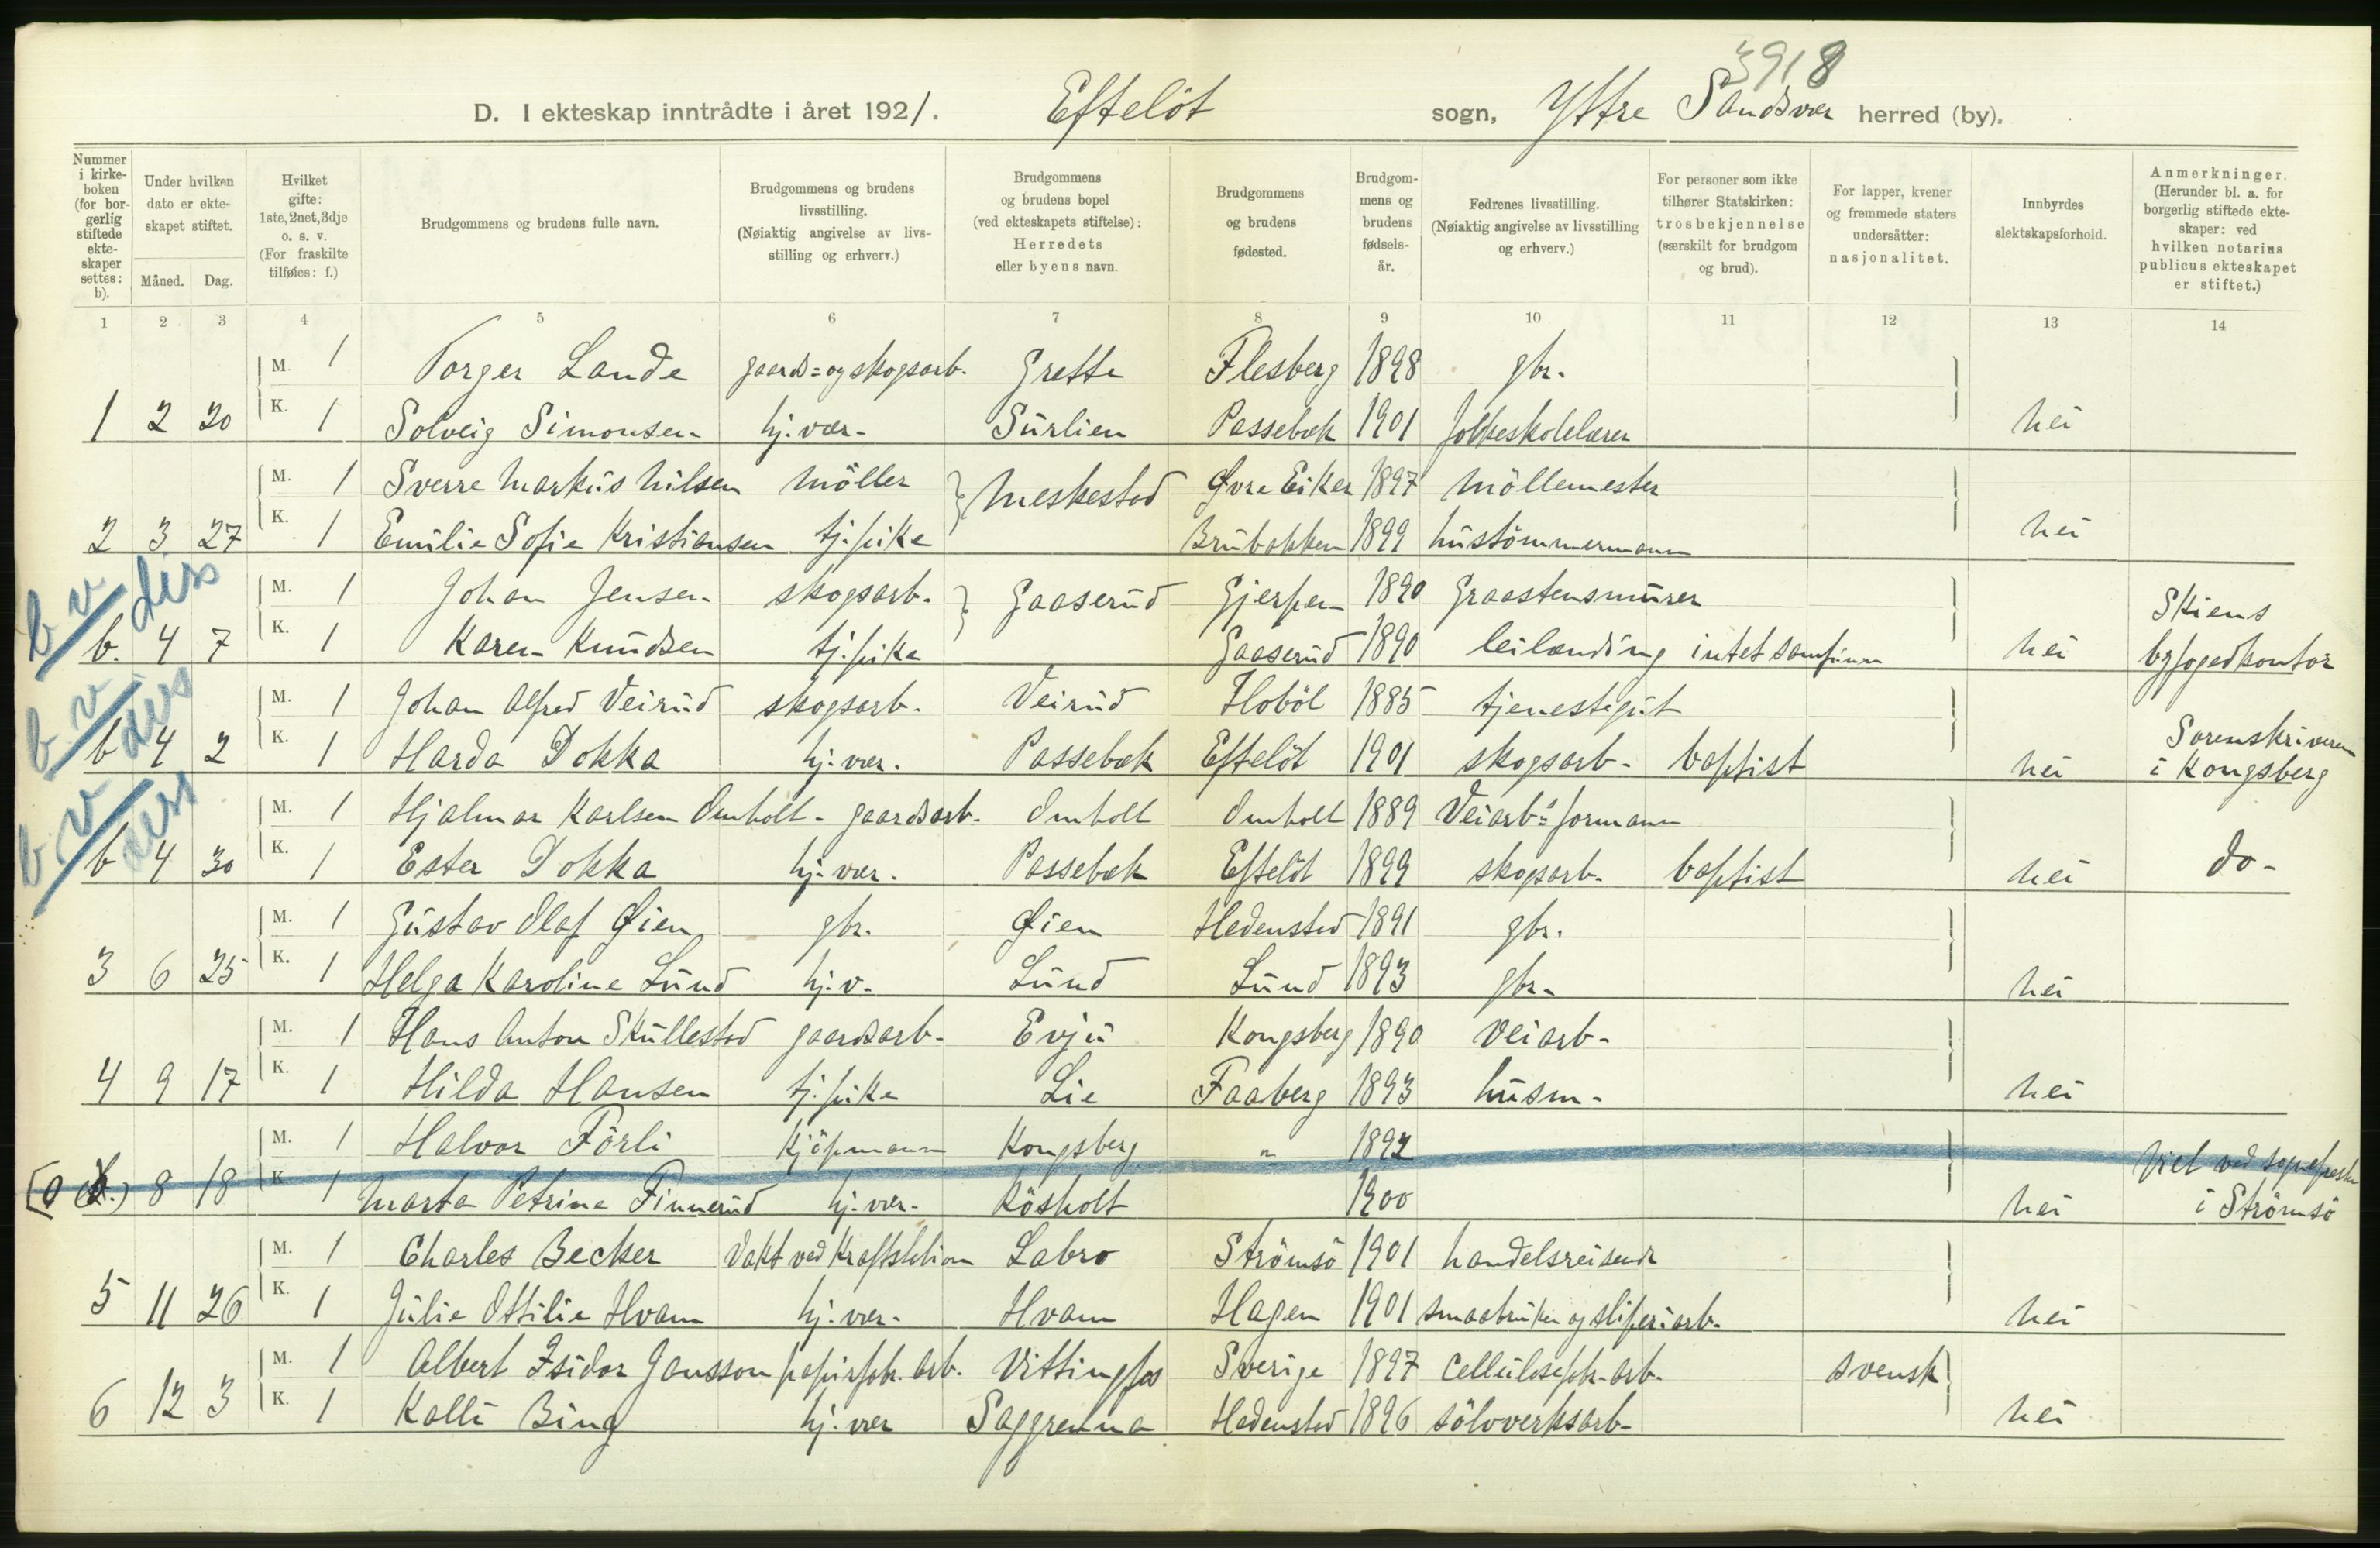 3918
D. I ekteskap inntrådte i året 1921. Efteløt sogn, Yttre Sandsvær herred (by).
Nummer i kirkeboken (for borgerlig stiftede ekteskaper settes: b).
Under hvilken dato er ekteskapet stiftet.
Måned. Dag.
Hvilket gifte: 1ste, 2net, 3dje o. s. v. (For fraskilte tilføies: f.)
Brudgommens og brudens fulle navn.
Brudgommens og brudens livsstilling. (Nøiaktig angivelse av livsstilling og erhverv.)
Brudgommens og brudens bopel (ved ekteskapets stiftelse): Herredets eller byens navn.
Brudgommens og brudens fødested.
Brudgommens og brudens fødselsår.
Fedrenes livsstilling. (Nøiaktig angivelse av livsstilling og erhverv.)
For personer som ikke tilhører Statskirken: trosbekjennelse (særskilt for brudgom og brud).
For lapper, kvener og fremmede staters undersåtter: nasjonalitet.
Innbyrdes slektskapsforhold.
Anmerkninger. (Herunder bl. a. for borgerlig stiftede ekteskaper: ved hvilken notarius publicus ekteskapet er stiftet.)
1 2 3 4 5 6 7 8 9 10 11 12 13 14
M. 1 Torger Lande gaards=og skogsarb. Grette Flesberg 1898 gbr.
1 2 20 K. 1 Solveig Simonsen hj. vær. Surlien Passebæk 1901 folkeskolelærer nei
M. 1 Sverre Markus Nilsen möller Meskestad Øvre Eiker 1897 möllemester
2 3 27 K. 1 Emilie Sofie Kristiansen tj. pike Brubakken 1899 hustömmermann nei
M. 1 Johan Jensen skogsarb. Gaaserud Gjerpen 1890 Graastensmurer Skiens
b. 4 7 K. 1 Karen Knudsen tj. pike Gaaserud 1890 leilending intet samfunn nei byfogedkontor
M. 1 Johan Alfred Veirud skogsarb. Veirud Hoböl 1885 tjenestegut
b 4 2 K. 1 Harda Dokka hj. vær. Passebæk Efteløt 1901 skogsarb. baptist nei Sorenskriveren i Kongsberg
M. 1 Hjalmar Karlsen Omholt gaardsarb. Omholt Omholt 1889 Veiarb.formann
b 4 30 K. 1 Ester Dokka hj. vær. Passebæk Efteløt 1899 skogsarb. baptist nei do.
M. 1 Gustav Olaf Øien gbr. Øien Hedenstad 1891 gbr.
3 6 25 K. 1 Helga Karoline Lund hj. v. Lund Lund 1893 gbr. nei
M. 1 Hans Anton Skullestad gaardsarb. Evju Kongsberg 1890 Veiarb.
4 9 17 K. 1 Hilda Hansen tj. pike Lie Faaberg 1893 husm. nei
M. 1 Halvor Förli Kjöpmann Kongsberg " 1892 Viet ved sognepresten
8 18 K. 1 Marta Petrine Finnerud hj. vær. Kösholt 1900 nei i Strömsö
M. 1 Charles Becker Vakt ved Kraftstation Labro Strömsö 1901 handelsreisende
5 11 26 K. 1 Julie Ottilie Hvam hj. vær. Hvam Hagen 1901 smaabruker og sliperiarb. nei
M. 1 Albert Isidor Jansson papirfabr. arb. Vittingfos Sverige 1897 Cellulosefabr. arb. svensk
6 12 3 K. 1 Kalli Bing hj. vær Saggrenna Hedenstad 1896 sölvverksarb. nei
b v
b v
b v